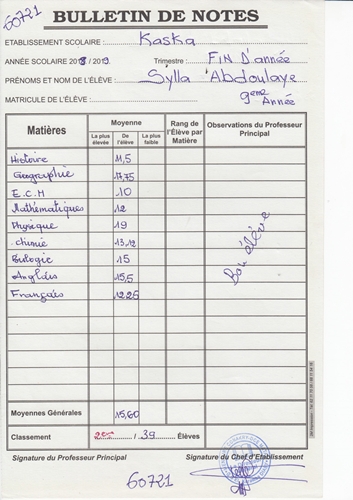 60721
BULLETIN DE NOTES
ETABLISSEMENT SCOLAIRE : Kaska
ANNÉE SCOLAIRE 2018 / 2019 Trimestre : FIN D'année
PRÉNOMS ET NOM DE L'ÉLÈVE : Sylla Abdoulaye
MATRICULE DE L'ÉLÈVE : 9eme Année
Matières Moyenne Rang de l'Élève par Matière Observations du Professeur Principal
La plus élevée De l'élève La plus faible
Histoire 11,5
Geographie 17,75
E.C.M 10
Mathématiques 12
Physique 19
chimie 13,12
Biologie 15
Anglais 15,5
Français 12,25
Bon élève
Moyennes Générales 15,60
Classement 2eme / 39 Élèves
Signature du Professeur Principal Signature du Chef d'Etablissement
60721